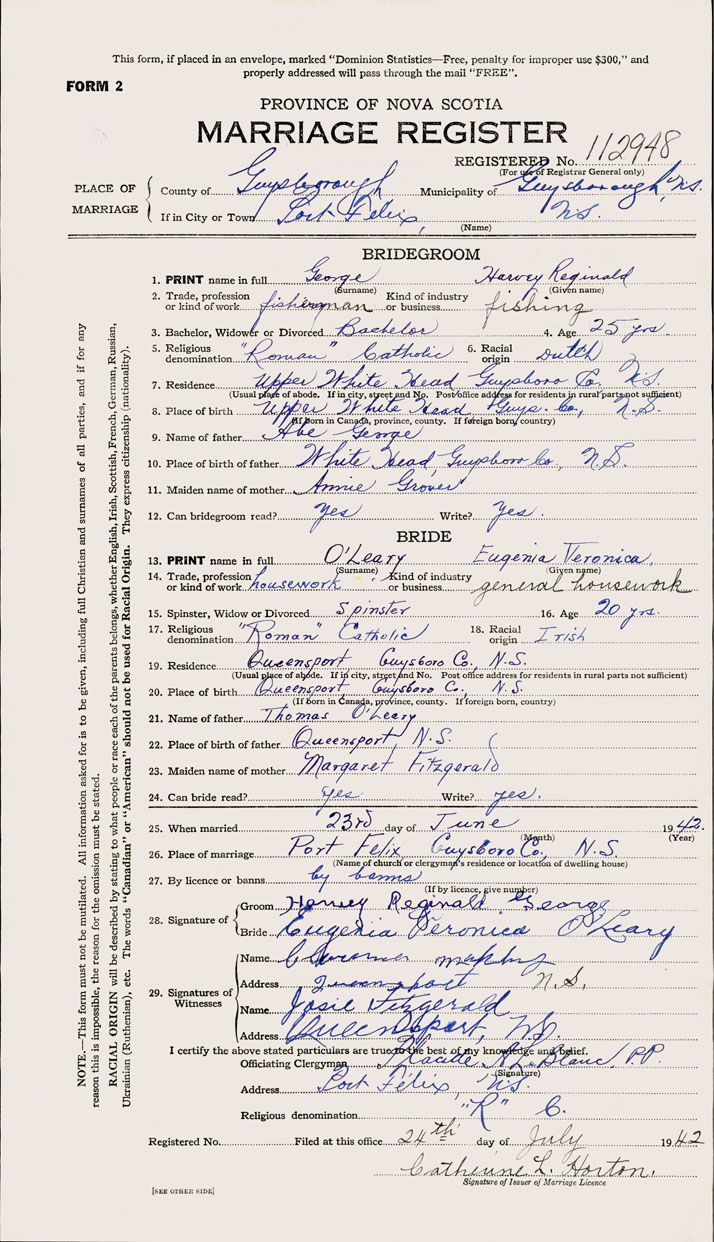 This form, if placed in an envelope, marked "Dominion Statistics—Free, penalty for improper use $300," and
properly addressed will pass through the mail "FREE".
FORM 2
PROVINCE OF NOVA SCOTIA
MARRIAGE REGISTER
REGISTERED No. 112948
(For use of Registrar General only)
PLACE OF MARRIAGE
County of Guysborough Municipality of Guysborough, N.S.
If in City or Town Port Felix, N.S.
(Name)
BRIDEGROOM
1. PRINT name in full George Harvey Reginald
(Surname) (Given name)
2. Trade, profession or kind of work fisherman Kind of industry or business fishing
3. Bachelor, Widower or Divorced Bachelor 4. Age 25 yrs.
5. Religious denomination "Roman" Catholic 6. Racial origin Dutch
7. Residence Upper White Head Guysboro Co., N.S.
(Usual place of abode. If in city, street and No. Post office address for residents in rural parts not sufficient)
8. Place of birth Upper White Head Guys. Co., N.S.
(If born in Canada, province, county. If foreign born, country)
9. Name of father Abe George
10. Place of birth of father White Head, Guysboro Co., N.S.
11. Maiden name of mother Annie Grover
12. Can bridegroom read? Yes Write? Yes.
BRIDE
13. PRINT name in full O'Leary Eugenia Veronica.
(Surname) (Given name)
14. Trade, profession or kind of work housework Kind of industry or business general housework
15. Spinster, Widow or Divorced Spinster 16. Age 20 yrs.
17. Religious denomination "Roman" Catholic 18. Racial origin Irish
19. Residence Queensport Guysboro Co., N.S.
(Usual place of abode. If in city, street and No. Post office address for residents in rural parts not sufficient)
20. Place of birth Queensport Guysboro Co., N.S.
(If born in Canada, province, county. If foreign born, country)
21. Name of father Thomas O'Leary
22. Place of birth of father Queensport, N.S.
23. Maiden name of mother Margaret Fitzgerald
24. Can bride read? Yes Write? Yes.
25. When married 23rd day of June 1942.
(Month) (Year)
26. Place of marriage Port Felix, Guysboro Co., N.S.
(Name of church or clergyman's residence or location of dwelling house)
27. By licence or banns by banns
(If by licence, give number)
28. Signature of
Groom Harvey Reginald George
Bride Eugenia Veronica O'Leary
29. Signatures of Witnesses
Name
Address Queensport N.S.
Name Josie Fitzgerald
Address Queensport, N.S.
I certify the above stated particulars are true to the best of my knowledge and belief.
Officiating Clergyman Blanc, P.P.
(Signature)
Address Port Félix, N.S.
Religious denomination "R" C.
Registered No. Filed at this office 24th day of July 1942
Catherine L. Horton.
Signature of Issuer of Marriage Licence
[SEE OTHER SIDE]
NOTE.—This form must not be mutilated. All information asked for is to be given, including full Christian and surnames of all parties, and if for any
reason this is impossible, the reason for the omission must be stated.
RACIAL ORIGIN will be described by stating to what people or race each of the parents belongs, whether English, Irish, Scottish, French, German, Russian,
Ukrainian (Ruthenian), etc. The words "Canadian" or "American" should not be used for Racial Origin. They express citizenship (nationality).